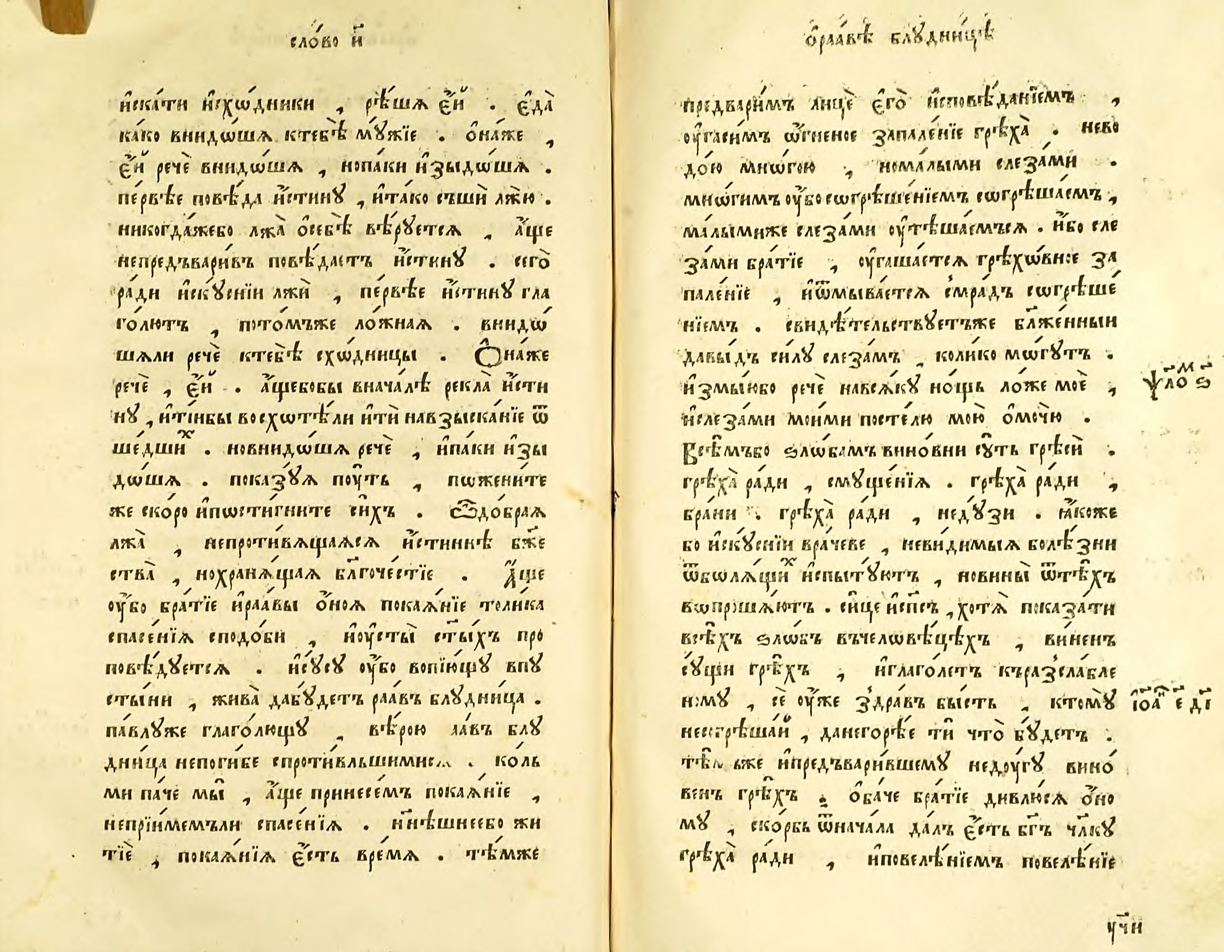 сло́во и҃
и҆ска́ти и҆схѡ́дники , рѣ́шѧ є҆́й . є҆да̀
ка́ко внидѡ́шѧ ктебѣ̀ мꙋ́жїе . ѻ҆на́же ,
є҆́й речѐ внидѡ́шѧ , нопа́ки и҆зыдѡ́шѧ .
пе́рвѣе повѣ́да и҆́стинꙋ , и҆та́ко съшѝ лжѐю .
никогда́жебо лжа̀ ѻ҆себѣ̀ вѣ́рꙋетсѧ , а҆́ще
непредъвари́въ повѣ́даетъ и҆́стинꙋ . сего̀
ра́ди и҆скꙋ́снїи лжѝ , пе́рвѣе и҆́стинꙋ гла
го́лютъ , пото́мъже ло́жнаѧ . внидѡ́
шѧли речѐ ктебѣ̀ схѡ́дницы . Ѻ҆на́же
речѐ , є҆́й . а҆́щебобы внача́лѣ рекла̀ и҆́сти
нꙋ , и҆ті́ибы восхѡтѣ́ли и҆тѝ навзыска́нїе ѿ
ше́дшиⷯ . новнидѡ́шѧ речѐ , и҆па́ки и҆зы
дѡ́шѧ . показꙋ́ѧ поꙋ́ть , пѡжени́те
же ско́ро и҆пѡсти́гните си́хъ . Ѽдо́браѧ
лжа̀ , непроти́вѧщаѧсѧ и҆́стиннѣ бж҃е
ства̀ , нохранѧ́щаѧ бл҃гоче́стїе . А҆́ще
оу҆́бо бра́тїе и҆раа́вы ѻ҆́ноѧ покаѧ́нїе толи́ка
спасе́нїѧ сподо́би , и҆оу҆сты̀ ст҃ы́хъ про
повѣ́дꙋетсѧ . и҆сꙋ́сꙋ оу҆́бо вопїю́щꙋ впꙋ
сты́ни , жива̀ дабꙋ́детъ раа́въ блꙋдни́ца .
па́влꙋже глаго́лющꙋ , вѣ́рою раа́въ блꙋ
дни́ца непоги́бе спроти́вльшимисѧ . ко́ль
ми па́че мы̀ , а҆́ще принесе́мъ покаѧ́нїе ,
непрїи́мемъли спасе́нїѧ . нн҃ѣшнеебо жи
тїѐ , покаѧ́нїѧ є҆́сть вре́мѧ . тѣ́мже
ѻ҆раа́вѣ блꙋдни́цѣ
предвари́мъ лицѐ є҆го̀ и҆сповѣ́данїемъ ,
оу҆гаси́мъ ѻ҆́гненое запале́нїе грѣха̀ . нево
до́ю мнѡ́гою , нома́лыми слеза́ми .
мнѡ́гимъ оу҆́бо сѡгрѣше́нїемъ сѡгрѣша́емъ ,
ма́лымиже слеза́ми оу҆тѣша́емъсѧ . и҆́бо сле
за́ми бра́тїе , оу҆гаша́етсѧ грѣхѡ́вное за
пале́нїе , и҆ѿмыва́етсѧ смра́дъ сѡгрѣше́
нїемъ . свидѣ́тельствꙋетъже бл҃же́нный
давы́дъ си́лꙋ слеза́мъ , коли́ко мѡ́гꙋтъ .
и҆змы́юбо речѐ навсѧ́кꙋ но́щь ло́же моѐ ,
и҆слеза́ми мои́ми посте́лю мою̀ ѻ҆мочю̀ .
ѱало́ⷨ ѕ҃
Всѣ́мъбо ѕлѡ́бамъ вино́вни сꙋ́ть грѣсѝ .
грѣха̀ ра́ди , смꙋще́нїѧ . грѣха̀ ра́ди ,
бра́ни . грѣха̀ ра́ди , недꙋ́зи . ꙗ҆́коже
бо и҆скꙋ́снїи врачеве , неви́димыѧ болѣ́зни
ѿболѧ́щиⷯ и҆спытꙋ́ютъ , новины̀ ѿтѣ́хъ
вѡпроша́ютъ . си́це и҆сп҃съ , хотѧ̀ показа́ти
всѣ́хъ ѕлѡ́бъ въчелѡвѣ́цѣхъ , ви́ненъ
сꙋ́щи грѣ́хъ , и҆глаго́летъ къразсла́бле
номꙋ , сѐ оу҆́же здра́въ бы́сть , ктомꙋ̀
неесгрѣша́й , данего́рѣе ти что̀ бꙋ́детъ .
і҆ѡаⷩ҇ є҃ ді҃
тѣ́мъже и҆предъвари́вшемꙋ недоу́гꙋ вино́
венъ грѣ́хъ . ѻ҆ба́че бра́тїе дивлю́сѧ ѻ҆́но
мꙋ , ско́рбь ѿнача́ла да́лъ є҆́сть бг҃ъ чл҃кꙋ
грѣха̀ ра́ди , и҆повелѣ́нїемъ повелѣ́нїе
ꙋ҃чи